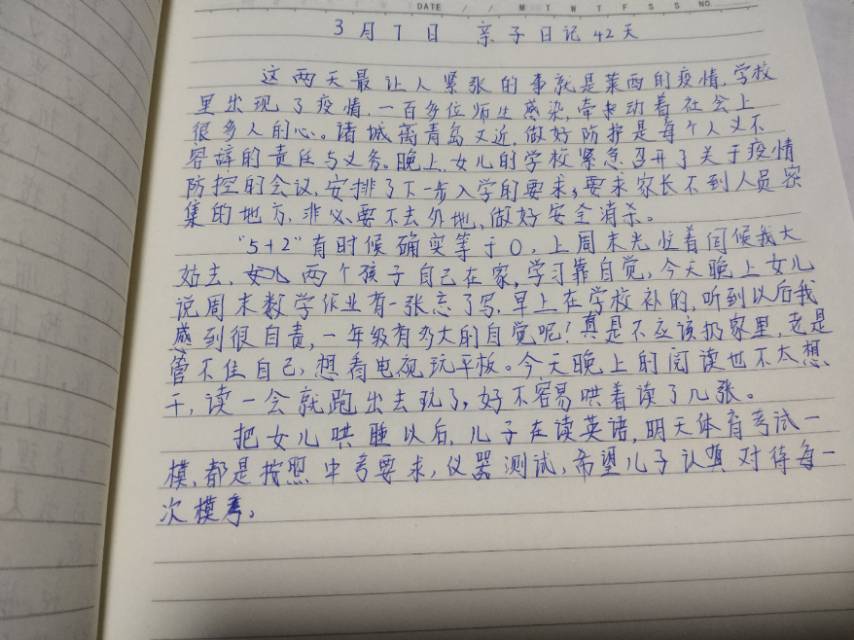 DATE / / M T W T F S S NO.
3月7日 亲子日记42天
这两天最让人紧张的事就是莱西的疫情,学校
里出现了疫情,一百多位师生感染,牵动着社会上
很多人的心。诸城离青岛又近,做好防护是每个人义不
容辞的责任与义务。晚上,女儿的学校紧急召开了关于疫情
防控的会议,安排了下一步入学的要求,要求家长不到人员密
集的地方,非必要不去外地、做好安全消杀。
“5+2”有时候确实等于0,上周末光忙着伺候我大
姑去,两个孩子自己在家,学习靠自觉,今天晚上女儿
说周末数学作业有一张忘了写,早上在学校补的,听到以后我
感到很自责,一年级有多大的自觉呢!真是不应该扔家里,老是
管不住自己,想看电视玩平板。今天晚上的阅读也不太想
干,读一会就跑出去玩了,好不容易哄着读了几张。
把女儿哄睡以后,儿子在读英语,明天体育考试一
模,都是按照中考要求,仪器测试,希望儿子认真对待每一
次模考。